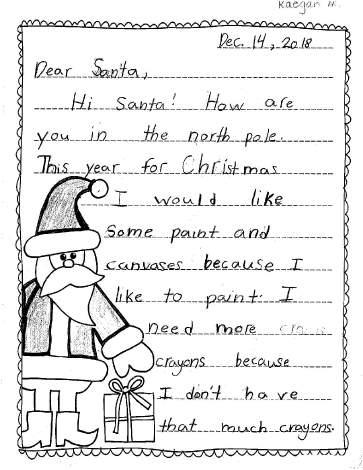 Raegan M.
Dec. 14, 2018
Dear Santa,
Hi Santa! How are
you in the north pole.
This year for Christmas
I would like
some paint and
canvases because I
like to paint. I
need more
crayons because
I don't have
that much crayons.